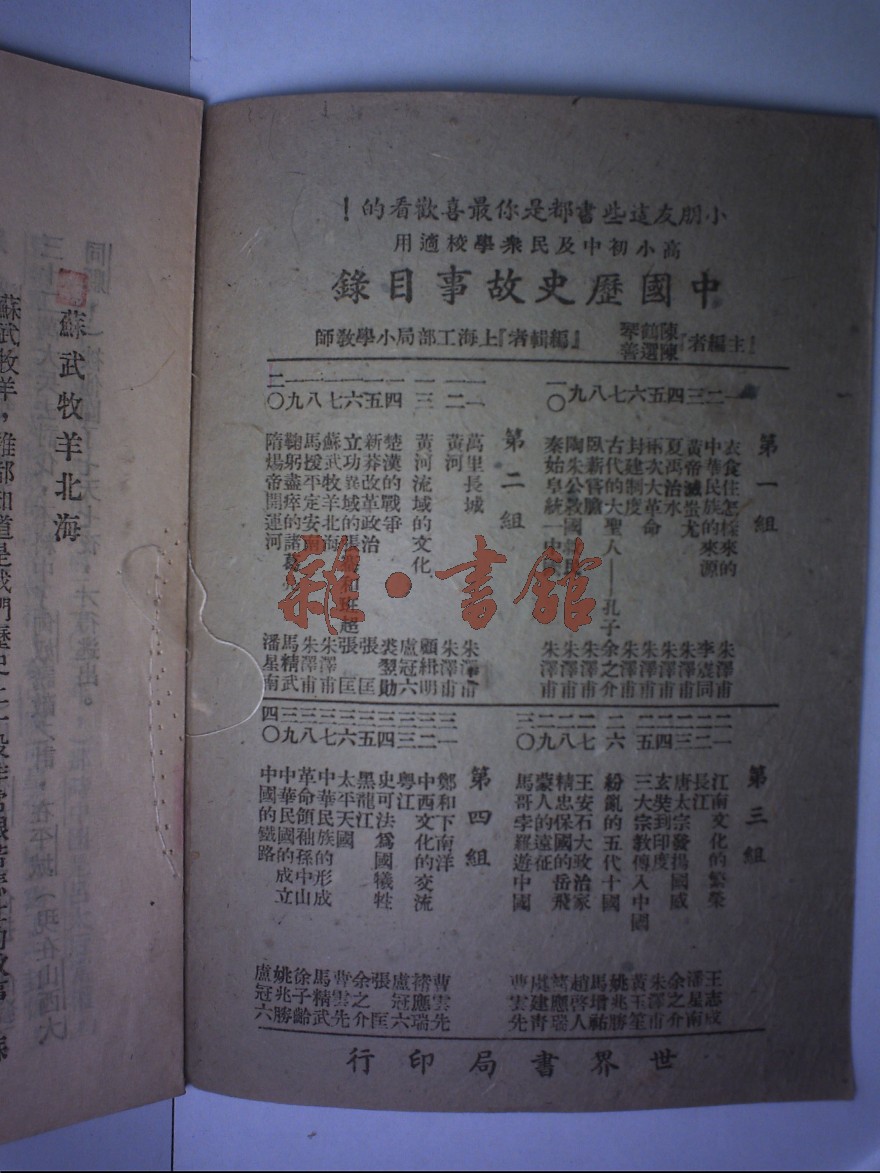 小朋友這些書都是你最喜歡看的！
高小初中及民衆學校適用
中國歷史故事目錄
主編者 陳鶴琴 陳選善 編輯者 上海工部局小學教師
第一組
一 衣食住怎樣來的 朱澤甫
二 中華民族的來源 李震同
三 黃帝滅蚩尤 朱澤甫
四 夏禹治水 朱澤甫
五 兩次大革命 朱澤甫
六 封建制度 朱澤甫
七 古代的大聖人——孔子 余之介
八 臥薪嘗膽 朱澤甫
九 陶朱公救國 朱澤甫
一〇 秦始皇統一中 朱澤甫
第二組
一一 萬里長城 朱澤甫
一二 黃河 朱澤甫
一三 黃河流域的文化 顧緝明
一四 楚漢的戰爭 盧冠六
一五 新莽改革政治 裘翌勛
一六 立功異域的張騫和班超 張匡
一七 蘇武牧羊北海 張匡
一八 馬援平定安南 朱澤甫
一九 鞠躬盡瘁的諸葛 馬精武
二〇 隋煬帝開運河 潘星南
第三組
二一 江南文化的繁榮 王志成
二二 長江 潘星南
二三 唐太宗發揚國威 余之介
二四 玄奘到印度 朱澤甫
二五 三大宗教傳入中國 黃玉笙
二六 紛亂的五代十國 姚兆勝
二七 王安石大政治家 馬增祐
二八 精忠保國的岳飛 趙啓人
二九 蒙人的遠征 褚應瑞
三〇 馬哥孛羅遊中國 虞建青 曹雲先
第四組
三一 鄭和下南洋 曹雲先
三二 中西文化的交流 褚應瑞
三三 粤江 盧冠六
三四 史可法爲國犧牲 張匡
三五 黑龍江 余之介
三六 太平天國 曹雲先
三七 中華民族的形成 馬精武
三八 革命領袖孫中山 徐子齡
三九 中華民國的成立 姚兆勝
四〇 中國的鐵路 盧冠六
世界書局印行
蘇武牧羊北海
蘇武牧羊，誰都知道是我們歷史上一段非常艱苦
的故事
雜·書館